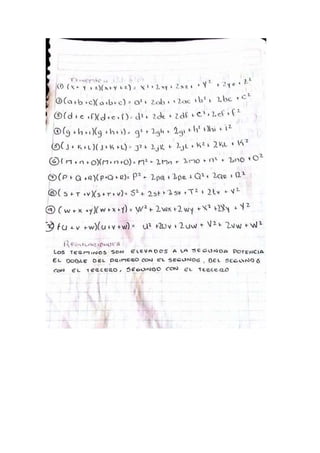 (1) (x + y + z)(x+y+z) = x²+2xy+2xz+ y² + 2yz+ z²
②(a+b+c)(a+b+c) = a²+ 2ab+ +2ac +b²+ 2bc +c²
③(d+e+f)(d+e+f)= d²+ 2de +2df +e²+2ef+f²
④(g+h+i)(g+h+i)= g²+2gh+ 2gi+h²+2hi+i²
⑤(J+K+L)(J+K+L)=
⑥(M+n+O)(M+n+O)= M²+ 2Mn+ 2mo+n²+ 2no+O²
⑦(P+Q+R)(P+Q+R)= P²+
⑧(S+T+V)(S+T+V)= S²+ 2st+
⑨(W+X+Y)(W+X+Y)= W²+2wx+2wy +X²+2xy + Y²
(U+V+W)(U+V+W)= U²+2uv+2uw + V²+ 2vw +W²
LOS TERMINOS SON ELEVADOS A LA SEGUNDA POTENCIA
EL DOBLE DEL PRIMERO CON EL SEGUNDO, DEL SEGUNDO
CON EL TERCERO, SEGUNDO CON EL TERCERO